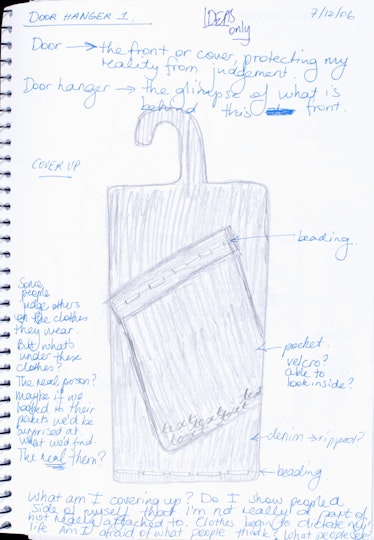 DOOR HANGER 1.
IDEAS
only
7/12/06
Door → the front or cover, protecting my
reality from judgement.
Door hanger → the glimpse of what is
behind this front.
COVER UP
beading.
Some
people
judge others
on the clothes
they wear.
But what's
under these
clothes?
The real person?
Maybe if we
looked in their
pockets we'd be
surprised at
what we'd find.
The real them?
pocket.
velcro?
able to
look inside?
text text text text
text text text
denim → ripped?
beading
What am I covering up? Do I show people a
side of myself that I'm not really a part of
not really attached to. Clothes begin to dictate my
life. Am I afraid of what people think? What people see?